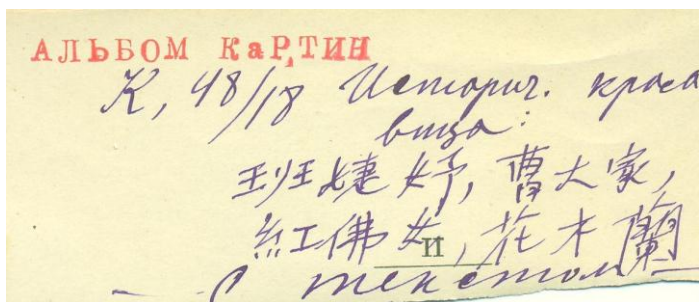 АЛЬБОМ КаРТИН
К, 48/18 Историч. краса
вица:
班婕妤, 曹大家,
紅佛女, 花木蘭
и
— — с текстом